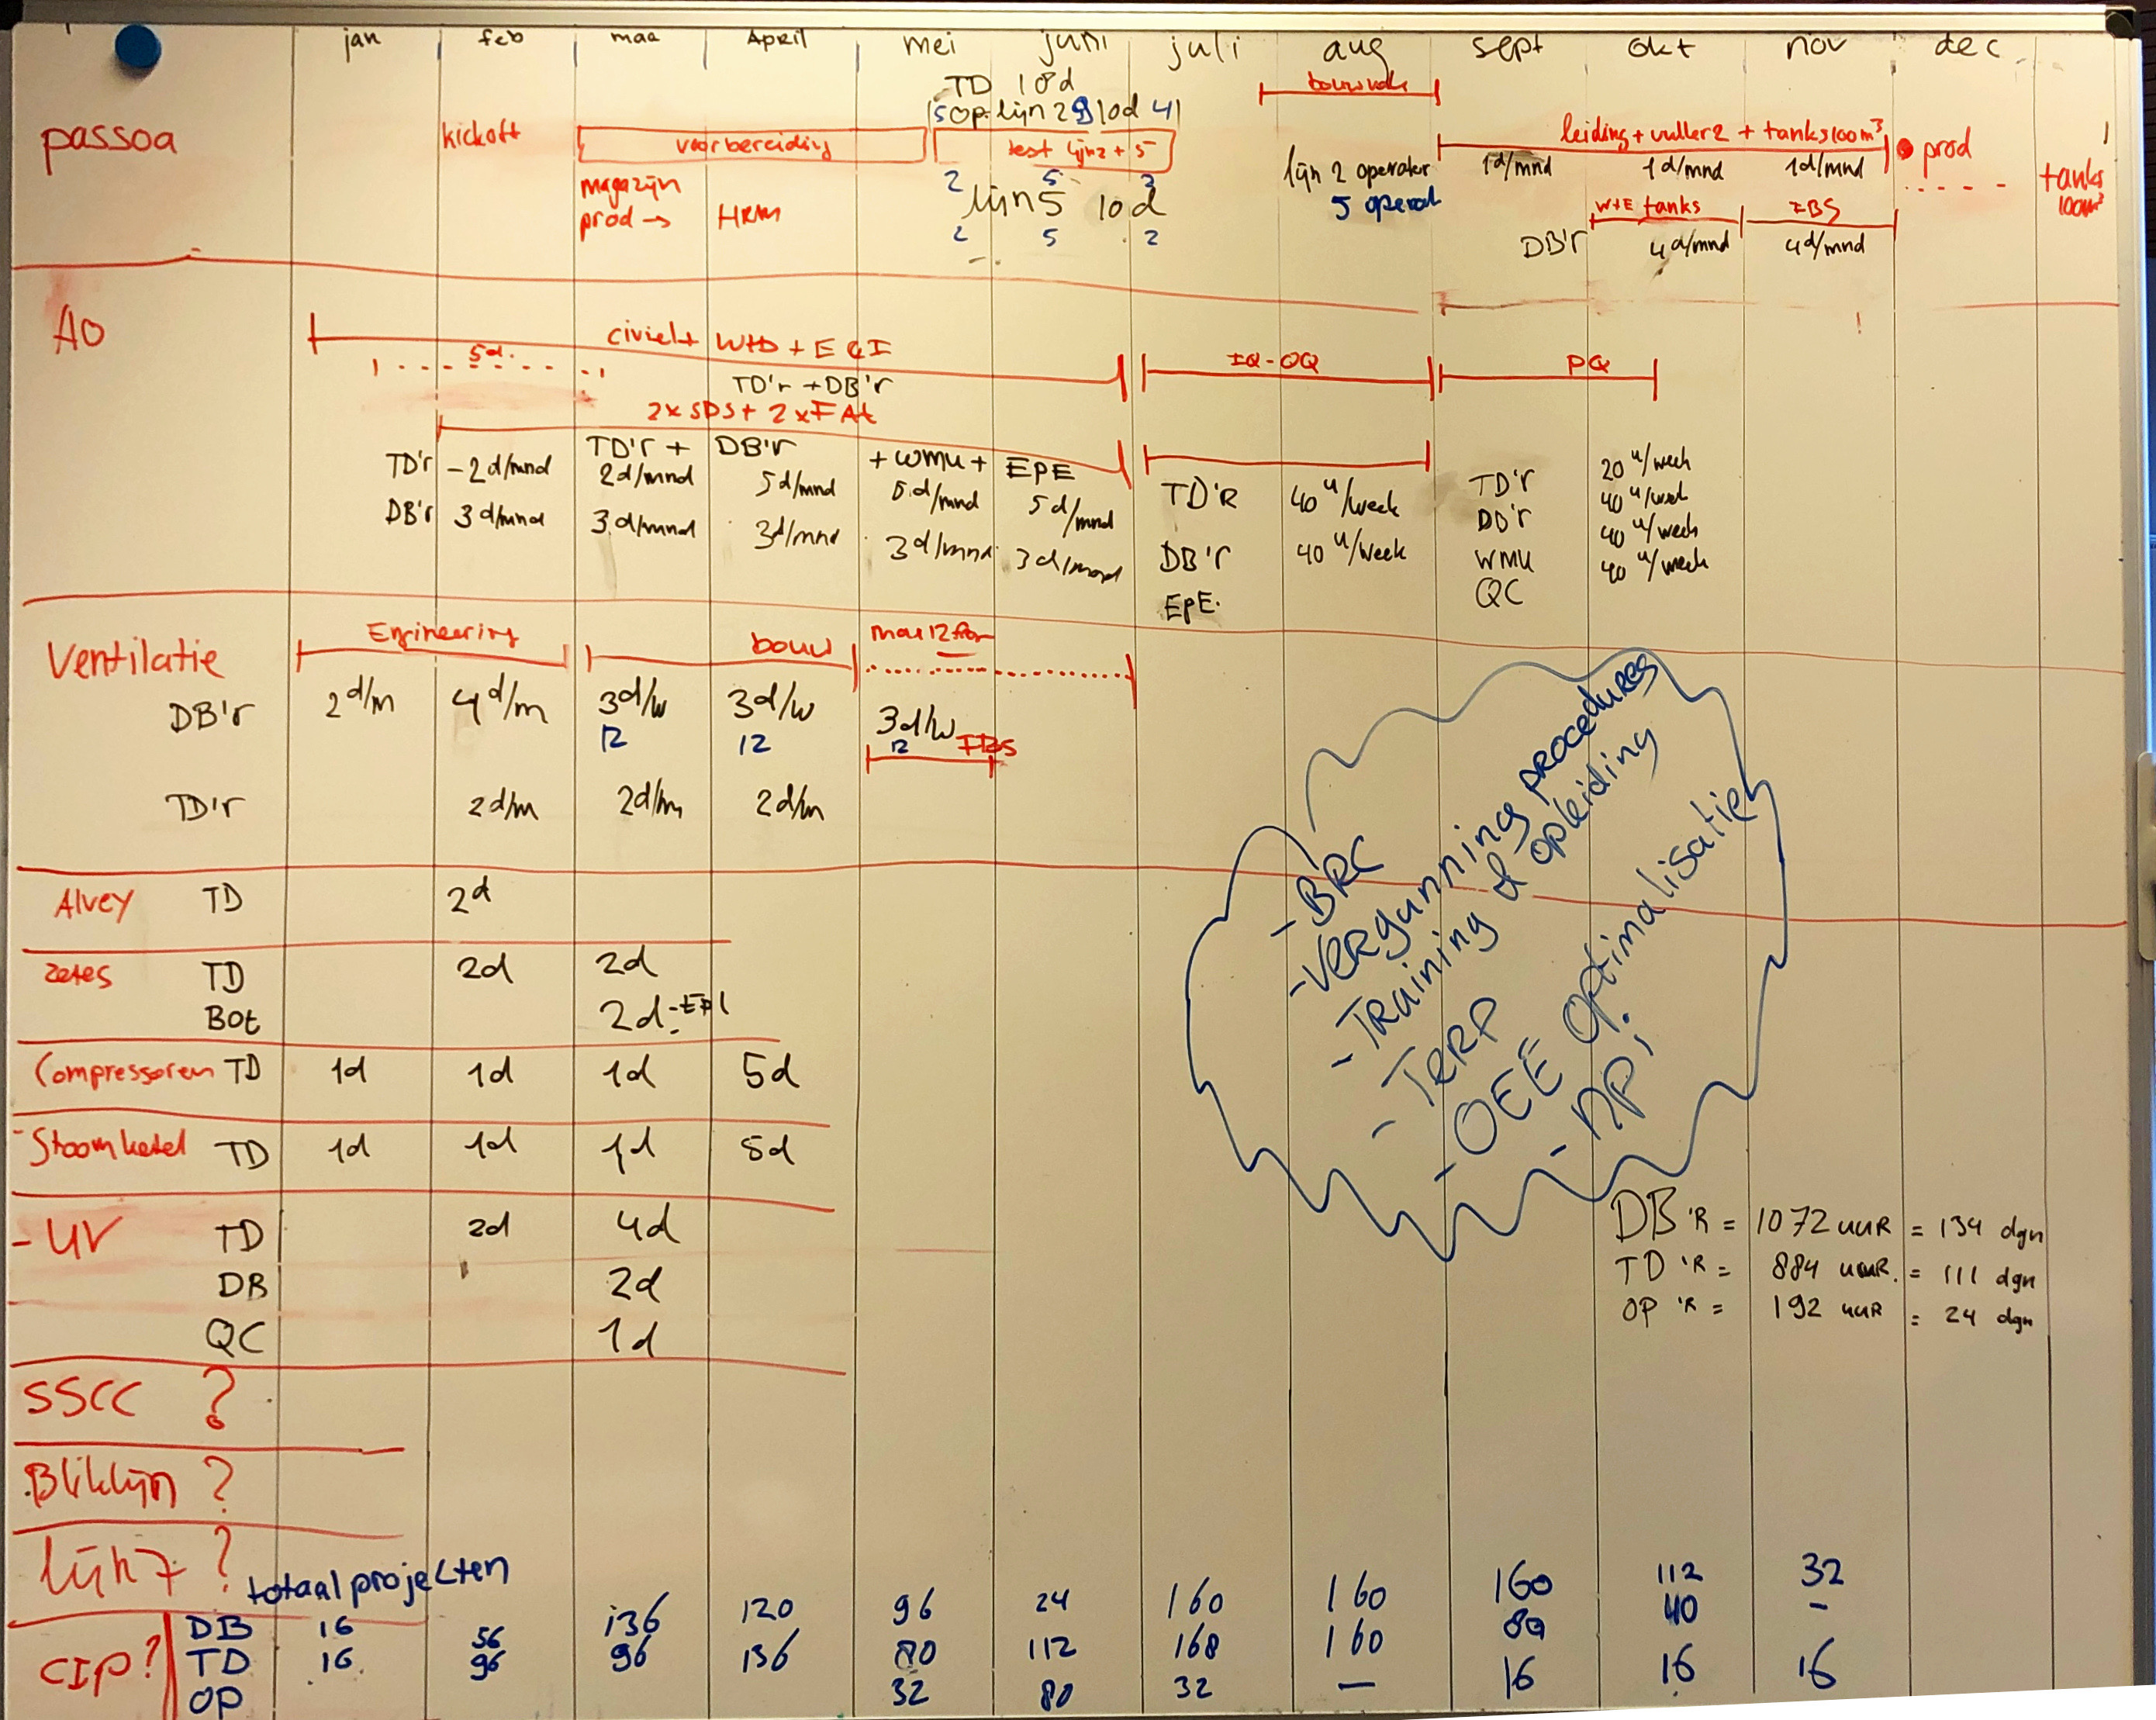 jan feb maa April mei juni juli aug sept okt nov dec
TD 10d
5 Op lijn 2 10d 4
bouwvak
passoa
kickoft
voorbereiding
test lijn 2 + 5
leiding + vuller 2 + tanks 100 m³
prod
1d/mnd 1d/mnd 1d/mnd
magazijn
prod → HRM
2 5 3
lijn 5 10 d
2 5 2
lijn 2 operator
5 operat
W+E tanks IBS
DB'r 4d/mnd 4d/mnd
tanks
100m³
AO
civiel + WtB + E & I
5d.
TD'r + DB'r
2 x SDS + 2 x FAt
IQ-OQ
PQ
TD'r + DB'r + WMU + EPE
TD'r - 2d/mnd 2d/mnd 5d/mnd 5d/mnd 5d/mnd
DB'r 3d/mnd 3d/mnd 3d/mnd 3d/mnd 3d/mnd
TD'R 40 u/week
DB'r 40 u/week
EPE.
TD'r 20 u/week
DB'r 40 u/week
WMU 40 u/week
QC 40 u/week
Ventilatie
Engineering bouw
DB'r 2d/m 4d/m 3d/w 3d/w 3d/w
12 12 12 IBS
TD'r 2d/m 2d/m 2d/m
Alvey TD 2d
Zetes TD 2d 2d
Bot 2d
Compressoren TD 1d 1d 1d 5d
- Stoomketel TD 1d 1d 1d 5d
- UV TD 2d 4d
DB 2d
QC 1d
SSCC ?
Bliklijn ?
lijn 7 ?
CIP ?
- BRC
- VERGUNNING PROCEDURES
- TRAINING & opleiding
- TERP
- OEE Optimalisatie
- NPi
DB 'R = 1072 uuR = 134 dgn
TD 'R = 884 uuR. = 111 dgn
OP 'R = 192 uuR = 24 dgn
totaal projekten
DB 16 56 136 120 96 24 160 160 160 112 32
TD 16 96 96 136 80 112 168 160 80 40 -
OP 32 80 32 — 16 16 16